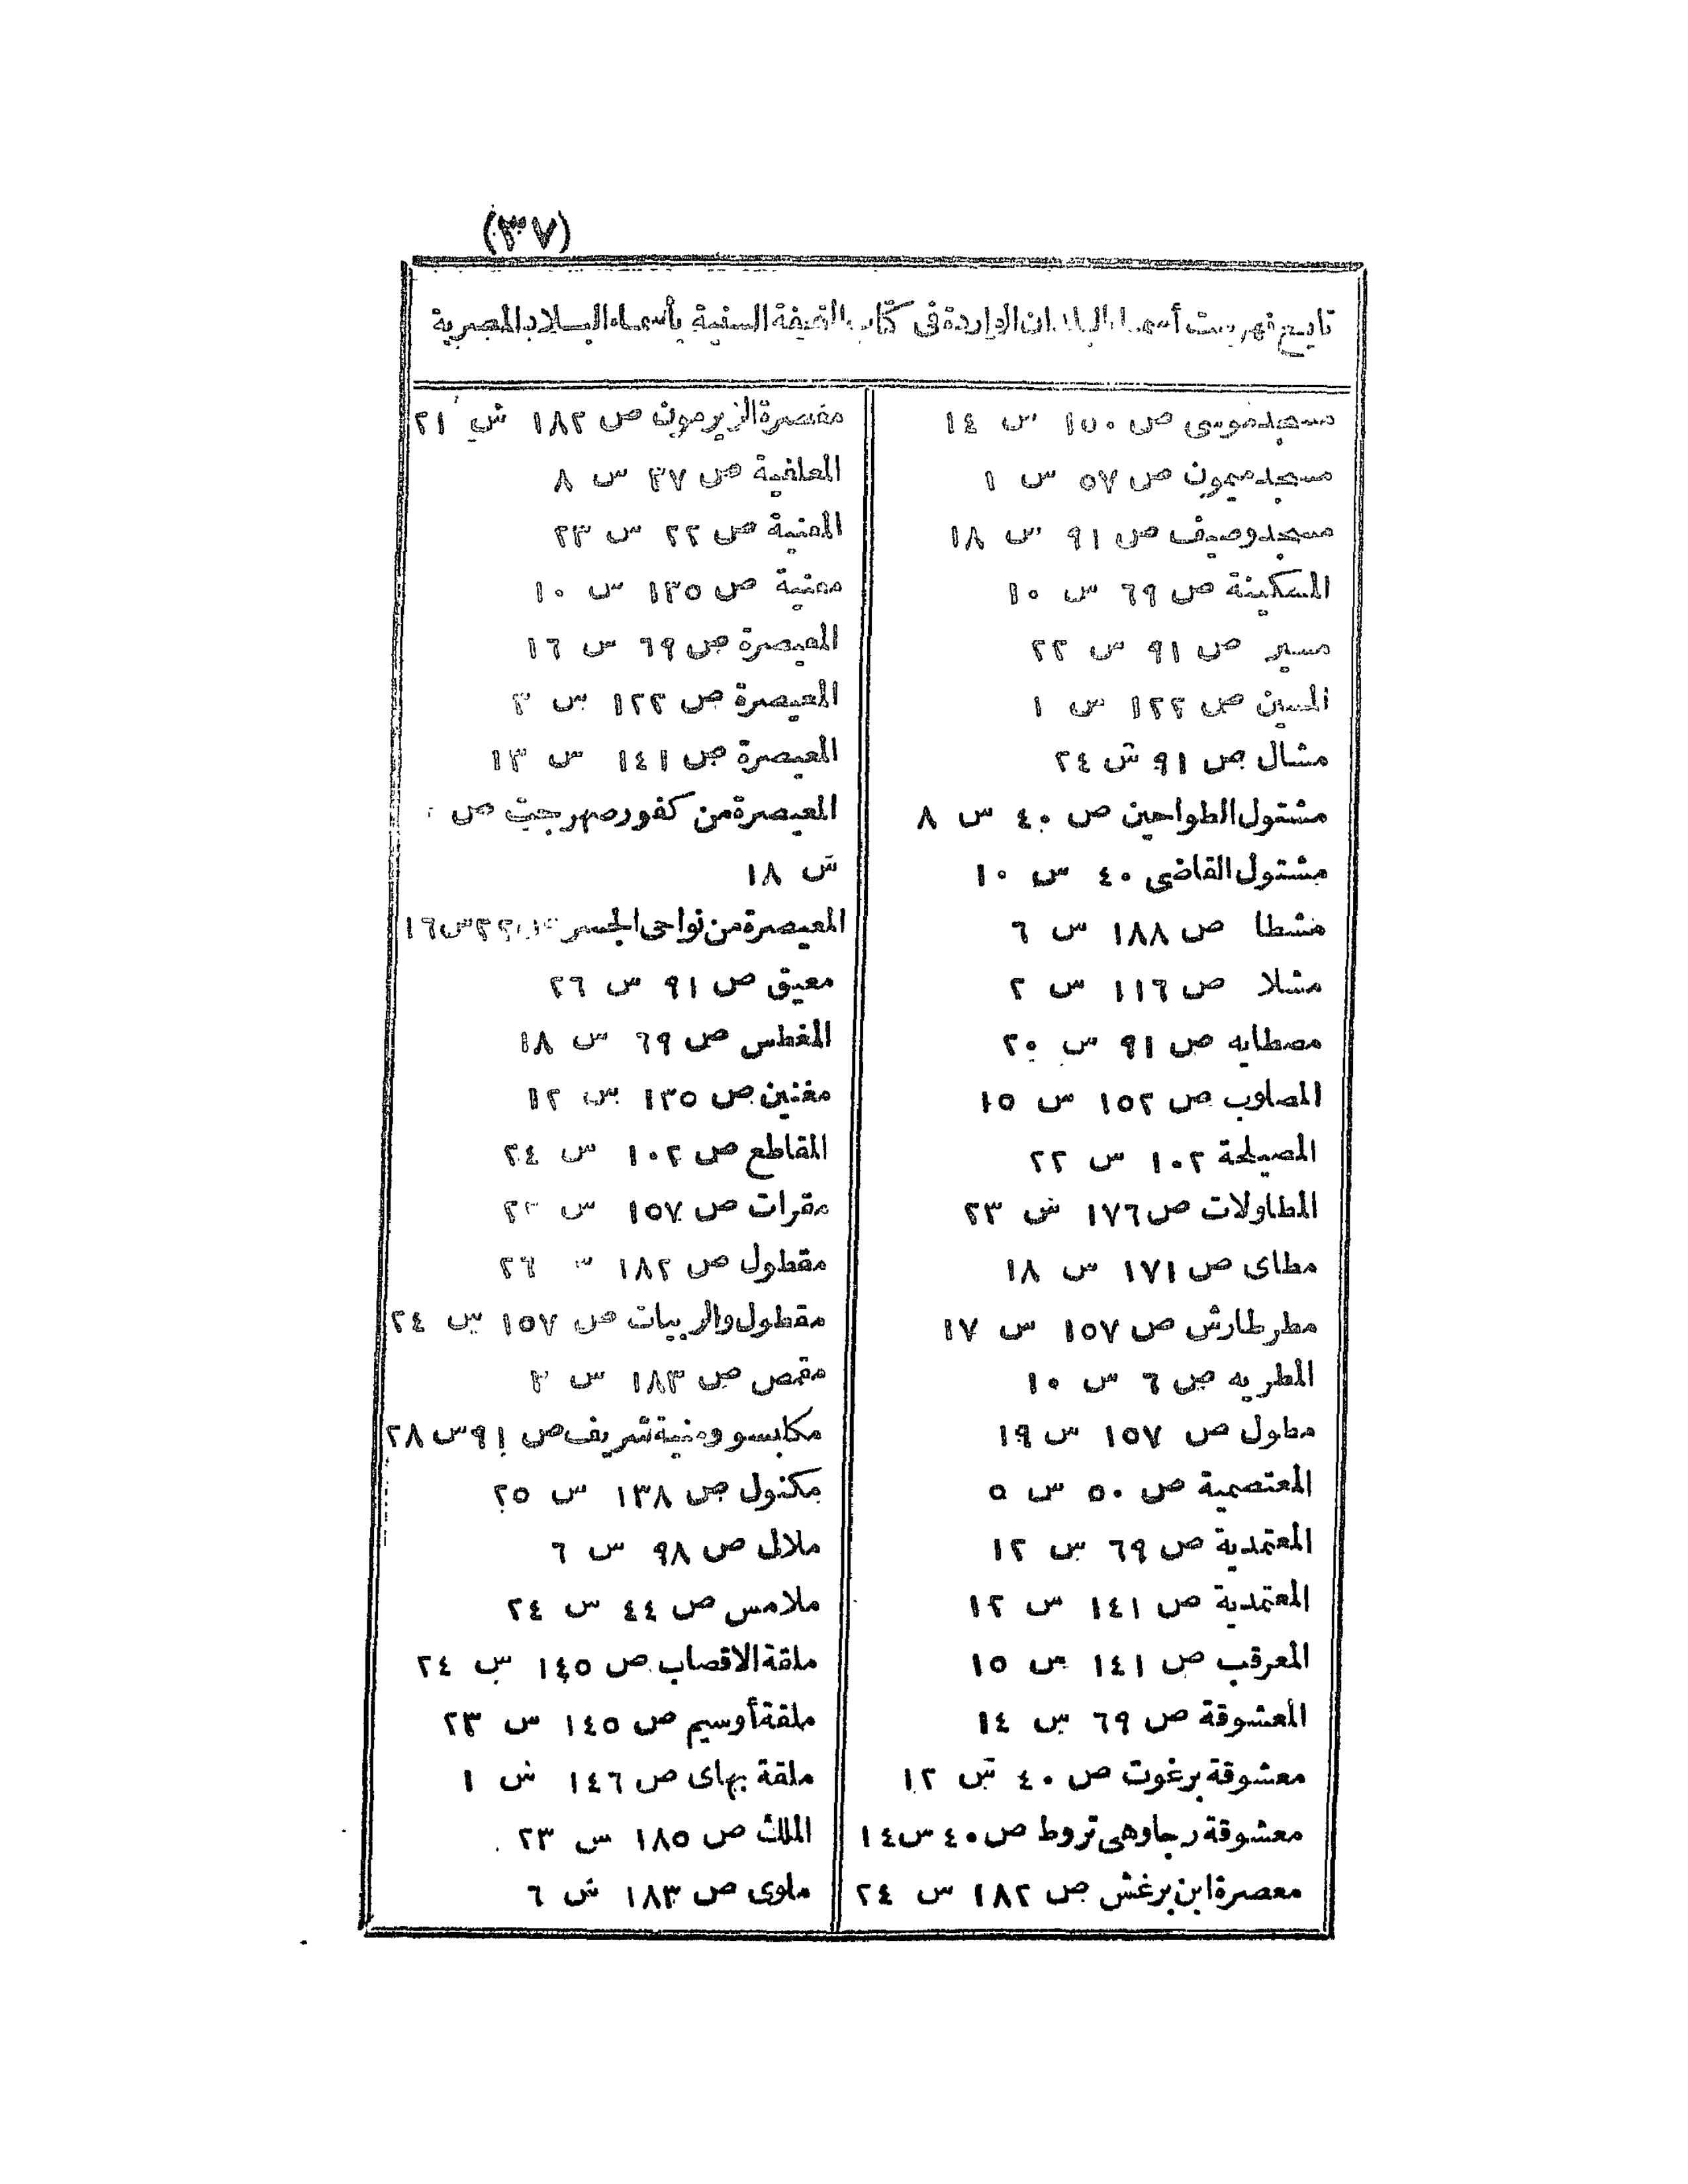 (٣٧)
تابع فهرست أسماء البلدان الواردة فى كتاب التحفة السنية بأسماء البلاد المصرية
مسجد موسى ص ١٥٠ س ١٤
مسجد ميمون ص ٥٧ س ١
مسجد وصيف ص ٩١ س ١٨
المسكينة ص ٦٩ س ١٠
مسير ص ٩١ س ٢٢
المسين ص ١٢٢ س ١
مشال ص ٩١ س ٢٤
مشتول الطواحين ص ٤٠ س ٨
مشتول القاضى ٤٠ س ١٠
مشطا ص ١٨٨ س ٦
مشلا ص ١١٦ س ٢
مصطايه ص ٩١ س ٢٠
المصلوب ص ١٥٢ س ١٥
المصيلحة ١٠٢ س ٢٢
المطاولات ص ١٧٦ س ٢٣
مطاى ص ١٧١ س ١٨
مطرطارش ص ١٥٧ س ١٧
المطريه ص ٦ س ١٠
مطول ص ١٥٧ س ١٩
المعتصمية ص ٥٠ س ٥
المعتمدية ص ٦٩ س ١٢
المعتمدية ص ١٤١ س ١٢
المعرقب ص ١٤١ س ١٥
المعشوقة ص ٦٩ س ١٤
معشوقة برغوت ص ٤٠ س ١٢
معشوقة رجا وهى تروط ص ٤٠ س ١٤
معصرة ابن برغش ص ١٨٢ س ٢٤
معصرة الزيرمون ص ١٨٢ س ٢١
المعلفية ص ٣٧ س ٨
المعنية ص ٢٢ س ٢٣
معنية ص ١٣٥ س ١٠
المعيصرة ص ٦٩ س ١٦
المعيصرة ص ١٢٢ س ٣
المعيصرة ص ١٤١ س ١٣
المعيصرة من كفور صهرجت ص
س ١٨
المعيصرة من نواحى الجسر س ١٦
معيق ص ٩١ س ٢٦
المغطس ص ٦٩ س ١٨
مغنين ص ١٣٥ س ١٢
المقاطع ص ١٠٢ س ٢٤
مقرات ص ١٥٧ س
مقطول ص ١٨٢ س ٢٦
مقطول والربيات ص ١٥٧ س ٢٤
مقمص ص ١٨٣ س
مكابسو ومنية شريف ص ٩١ س ٢٨
مكنول ص ١٣٨ س ٢٥
ملال ص ٩٨ س ٦
ملامس ص ٤٤ س ٢٤
ملقة الاقصاب ص ١٤٥ س ٢٤
ملقة أوسيم ص ١٤٥ س ٢٣
ملقة بهاى ص ١٤٦ س ١
الملك ص ١٨٥ س ٢٣
ملوى ص ١٨٣ س ٦